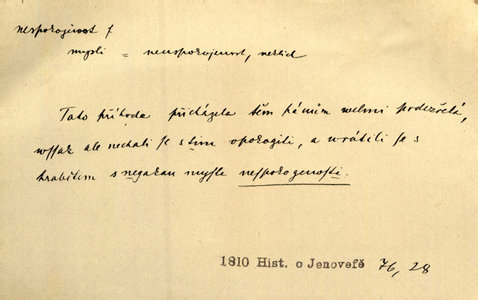 nespokojivost f
mysli = neuspokojenost, neklid
Tato příhoda přicházela těm pánům welmi podezřelá,
wssak ale nechali se s tim opokogiti, a wrátili se s
hrabětem s negakau mysle nespokogenosti.
1810 Hist. o Jenovefě 76, 28